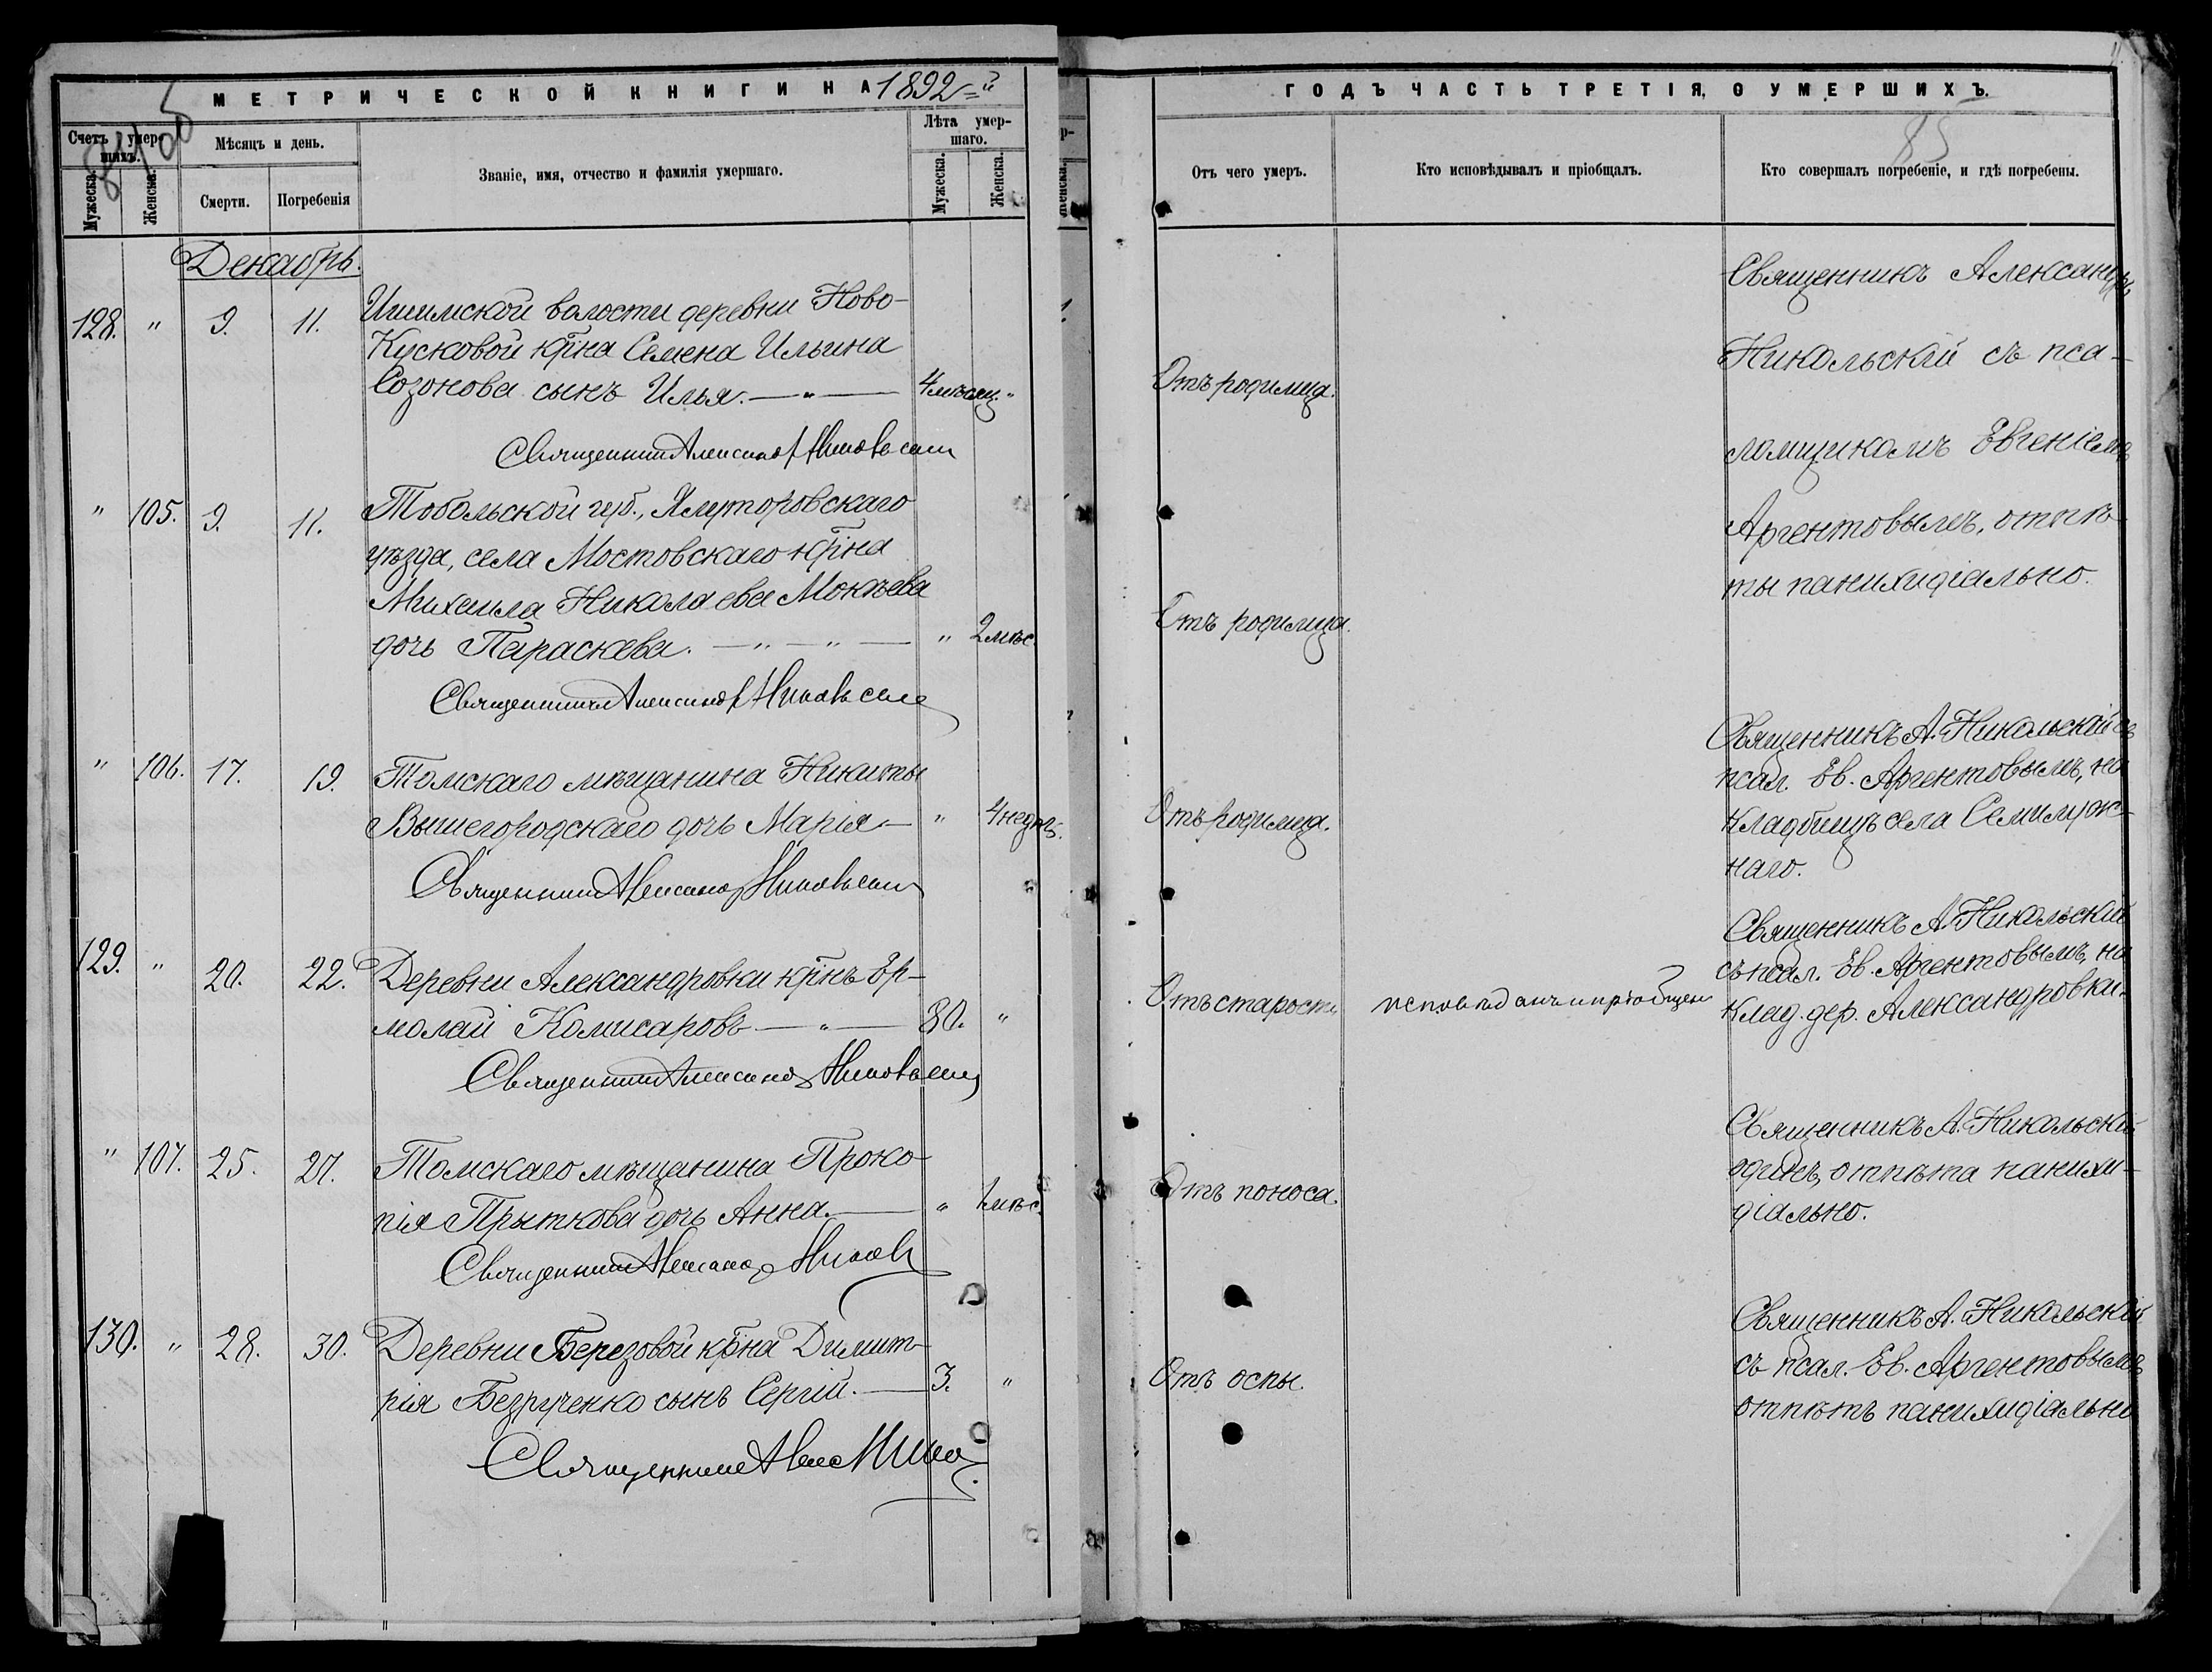 МЕТРИЧЕСКОЙ КНИГИ НА 1892-й
Счетъ умер-
шихъ.
Мѣсяцъ и день.
Званіе, имя, отчество и фамилія умершаго.
Лѣта умер-
шаго.
Мужеска.
Женска.
Смерти.
Погребенія
Мужеска.
Женска.
Декабрь.
128. " 9. 11. Ишимской волости деревни Ново-
Кусковой кр̃на Семена Ильина
Созонова сынъ Илья. — " — 4 мѣсяц. "
Священникъ Александръ Никольскій
" 105. 9. 11. Тобольской губ., Ялуторовскаго
уѣзда, села Мостовскаго кр̃на
Михаила Николаева Мокѣева
дочь Параскева. — " — " — " 2 мѣс.
Священникъ Александръ Никольскій
" 106. 17. 19. Томскаго мѣщанина Никиты
Вышегородскаго дочь Марія — " 4 недѣл.
Священникъ Александръ Никольскій
129. " 20. 22. Деревни Александровки кр̃нъ Ер-
молай Комисаровъ — " — 80. "
Священникъ Александръ Никольскій
" 107. 25. 27. Томскаго мѣщанина Проко-
пія Прыткова дочь Анна. — " 1 мѣс.
Священникъ Александръ Никольскій
130. " 28. 30. Деревни Березовой кр̃на Димит-
рія Безрученко сынъ Сергій. — 3. "
Священникъ Алекс Никол
ГОДЪ ЧАСТЬ ТРЕТІЯ, О УМЕРШИХЪ.
85
Отъ чего умеръ.
Кто исповѣдывалъ и пріобщалъ.
Кто совершалъ погребеніе, и гдѣ погребены.
Священникъ Александръ
Никольскій съ пса-
Отъ родимца.
ломщикомъ Евгеніемъ
Аргентовымъ, отпѣ-
ты панихидіально.
Отъ родимца.
Священникъ А. Никольскій съ
псал. Ев. Аргентовымъ, на
Отъ родимца.
кладбищѣ села Семилуж-
наго.
Священникъ А. Никольскій
съ псал. Ев. Аргентовымъ, на
Отъ старости исповѣданъ и пріобщен
клад. дер. Александровки.
Священникъ А. Никольскій
Отъ поноса.
одинъ, отпѣта панихи-
діально.
Священникъ А. Никольскій
Отъ оспы.
съ псал. Ев. Аргентовымъ
отпѣтъ панихидіально